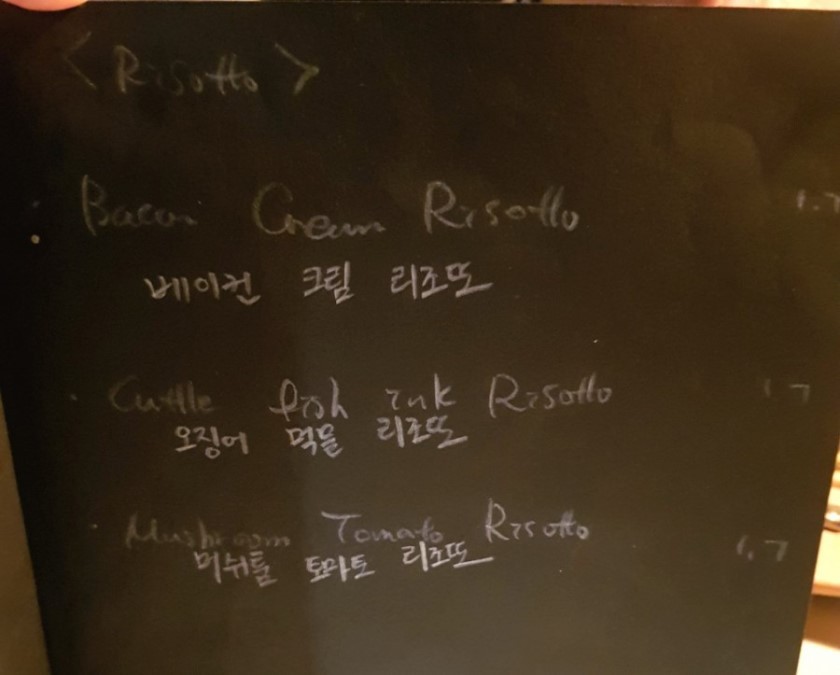 < Risotto >
Bacon Cream Risotto 1.7
베이컨 크림 리조또
Cuttle fish ink Risotto 1.7
오징어 먹물 리조또
Mushroom Tomato Risotto 1.7
머쉬룸 토마토 리조또